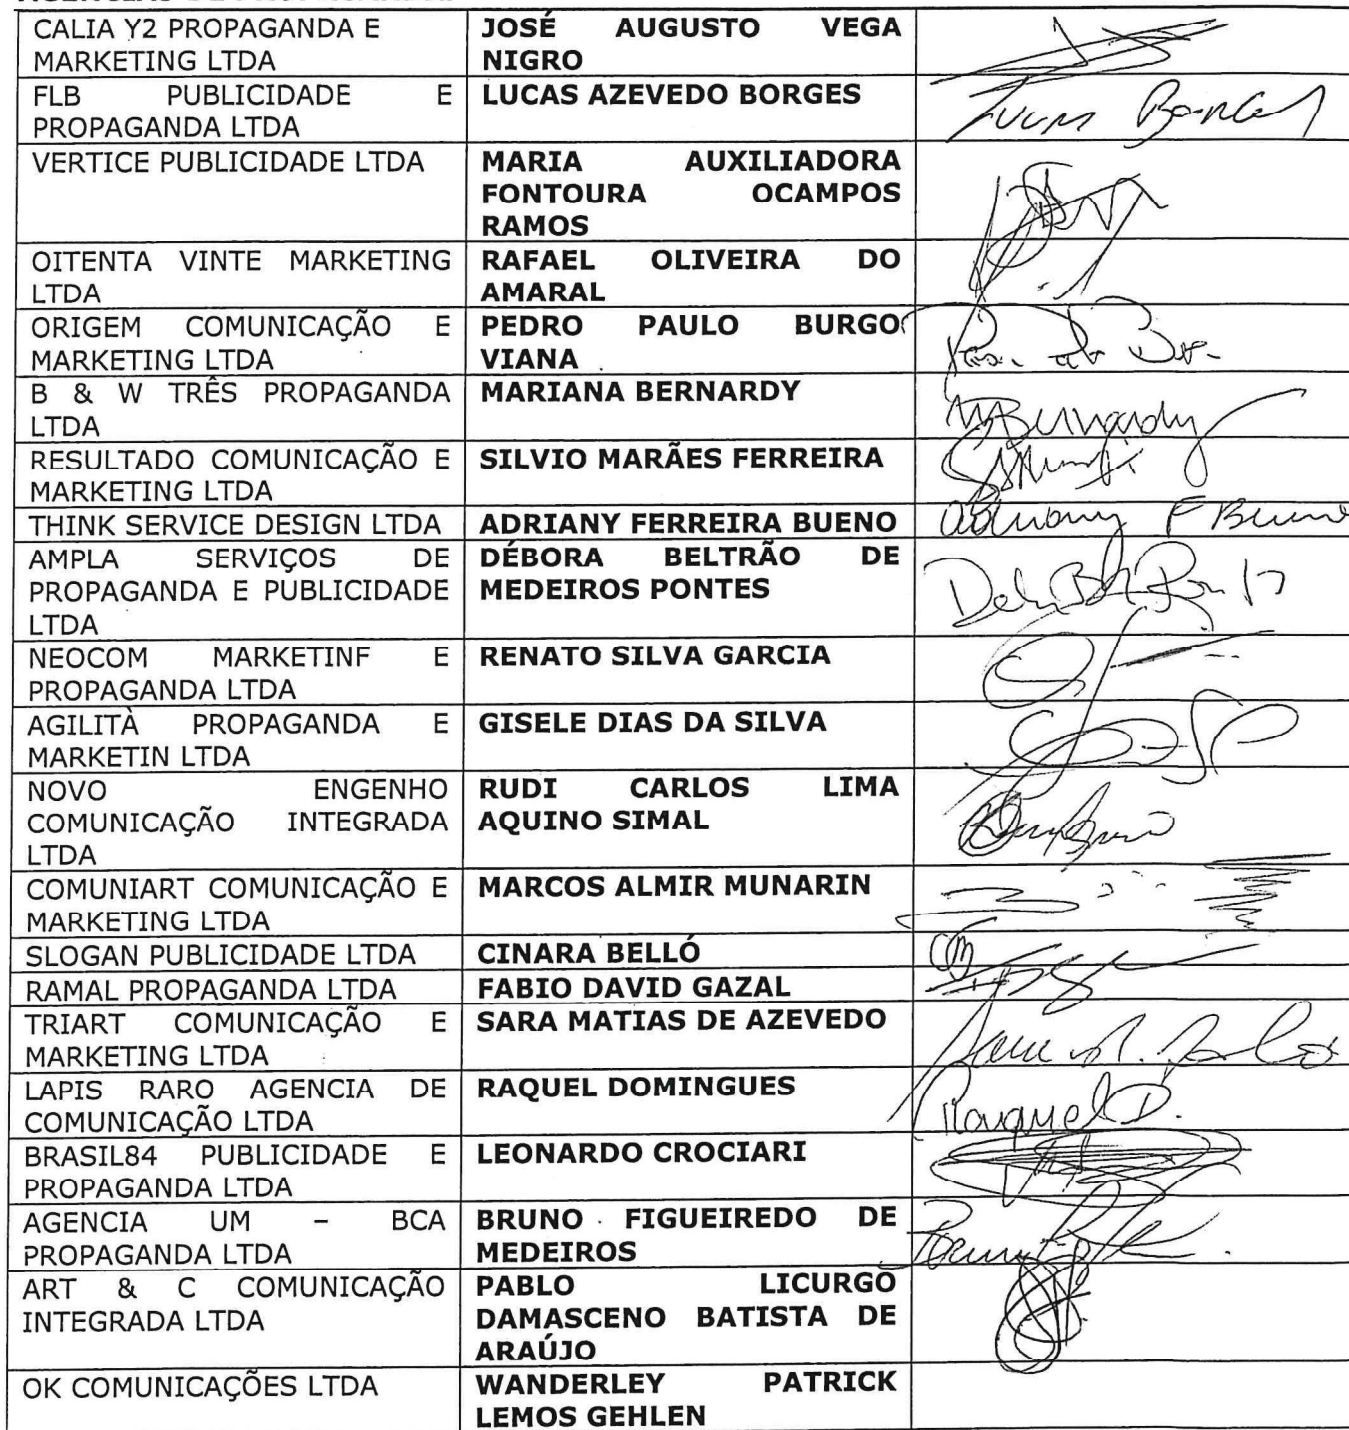 CALIA Y2 PROPAGANDA E
MARKETING LTDA
JOSÉ AUGUSTO VEGA
NIGRO
FLB PUBLICIDADE E
PROPAGANDA LTDA
LUCAS AZEVEDO BORGES
VERTICE PUBLICIDADE LTDA
MARIA AUXILIADORA
FONTOURA OCAMPOS
RAMOS
OITENTA VINTE MARKETING
LTDA
RAFAEL OLIVEIRA DO
AMARAL
ORIGEM COMUNICAÇÃO E
MARKETING LTDA
PEDRO PAULO BURGO
VIANA
B & W TRÊS PROPAGANDA
LTDA
MARIANA BERNARDY
MBernardy
RESULTADO COMUNICAÇÃO E
MARKETING LTDA
SILVIO MARÃES FERREIRA
THINK SERVICE DESIGN LTDA
ADRIANY FERREIRA BUENO
Adriany F Bueno
AMPLA SERVIÇOS DE
PROPAGANDA E PUBLICIDADE
LTDA
DÉBORA BELTRÃO DE
MEDEIROS PONTES
NEOCOM MARKETINF E
PROPAGANDA LTDA
RENATO SILVA GARCIA
AGILITÀ PROPAGANDA E
MARKETIN LTDA
GISELE DIAS DA SILVA
NOVO ENGENHO
COMUNICAÇÃO INTEGRADA
LTDA
RUDI CARLOS LIMA
AQUINO SIMAL
COMUNIART COMUNICAÇÃO E
MARKETING LTDA
MARCOS ALMIR MUNARIN
SLOGAN PUBLICIDADE LTDA
CINARA BELLÓ
RAMAL PROPAGANDA LTDA
FABIO DAVID GAZAL
TRIART COMUNICAÇÃO E
MARKETING LTDA
SARA MATIAS DE AZEVEDO
LAPIS RARO AGENCIA DE
COMUNICAÇÃO LTDA
RAQUEL DOMINGUES
Raquel D.
BRASIL84 PUBLICIDADE E
PROPAGANDA LTDA
LEONARDO CROCIARI
AGENCIA UM – BCA
PROPAGANDA LTDA
BRUNO FIGUEIREDO DE
MEDEIROS
ART & C COMUNICAÇÃO
INTEGRADA LTDA
PABLO LICURGO
DAMASCENO BATISTA DE
ARAÚJO
OK COMUNICAÇÕES LTDA
WANDERLEY PATRICK
LEMOS GEHLEN